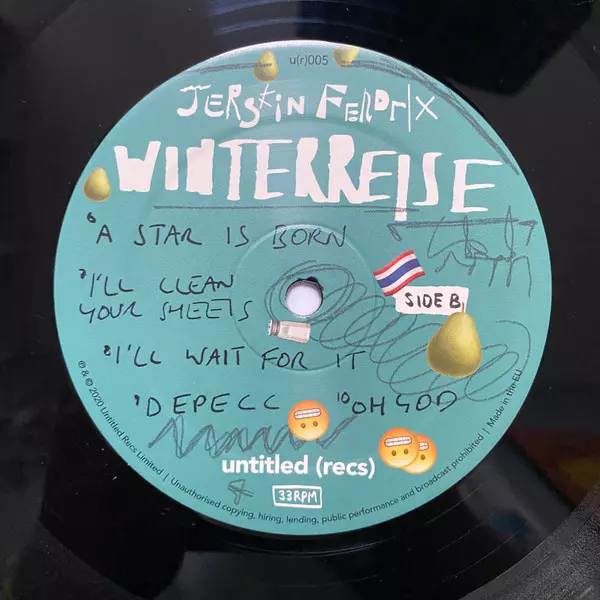 u(r)005
JERSKIN FENDRIX
WINTERREISE
6 A STAR IS BORN
7 I'LL CLEAN
YOUR SHEETS
SIDE B
8 I'LL WAIT FOR IT
9 DEPECC 10 OH GOD
untitled (recs)
33RPM
℗ & © 2020 Untitled Recs Limited | Unauthorised copying, hiring, lending, public performance and broadcast prohibited | Made in the EU